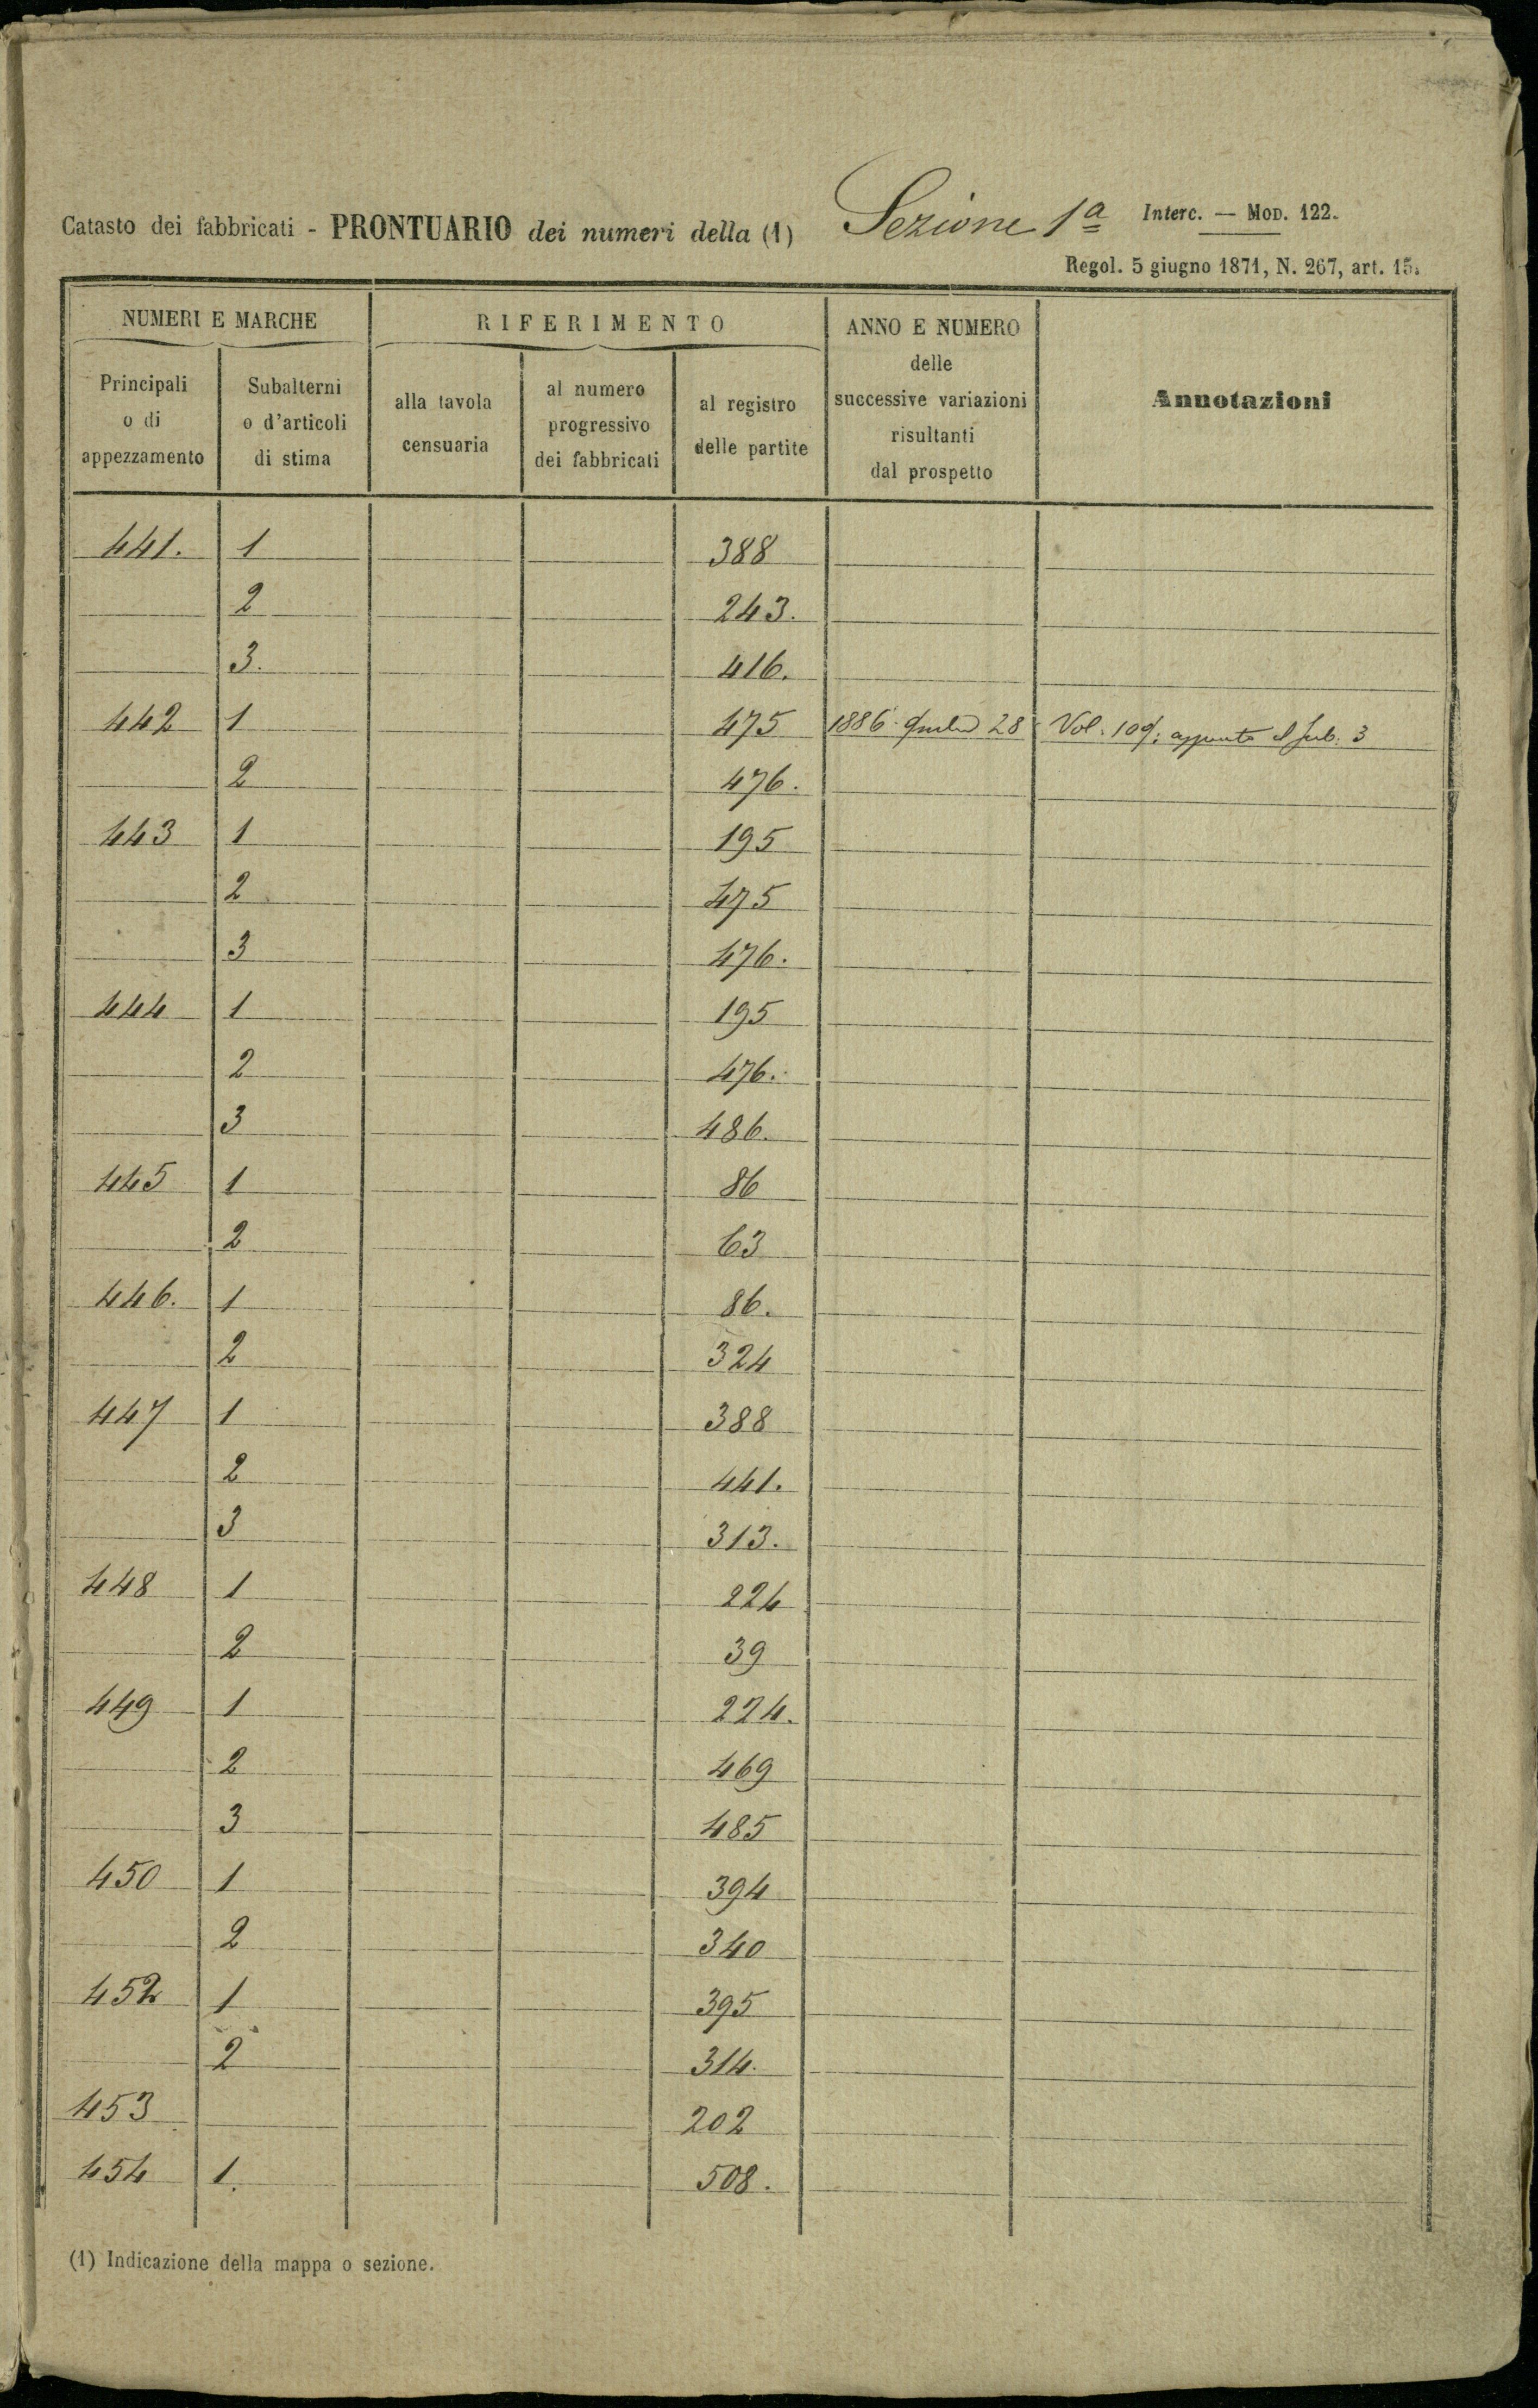 Catasto dei fabbricati - PRONTUARIO dei numeri della (1) Sezione 1ª Interc. — MOD. 122.
Regol. 5 giugno 1871, N. 267, art. 15.
NUMERI E MARCHE
RIFERIMENTO
ANNO E NUMERO
delle
successive variazioni
risultanti
dal prospetto
Annotazioni
Principali
o di
appezzamento
Subalterni
o d'articoli
di stima
alla tavola
censuaria
al numero
progressivo
dei fabbricati
al registro
delle partite
441. 1 388
2 243.
3. 416.
442 1 475 1886 28 Vol. 109: Sub. 3
2 476.
443 1 195
2 475
3 476.
444 1 195
2 476.
3 486.
445 1 86
2 63
446. 1 86.
2 324
447 1 388
2 441.
3 313.
448 1 224
2 39
449 1 224.
2 469
3 485
450 1 394
2 340
452 1 395
2 314.
453 202
454 1. 508.
(1) Indicazione della mappa o sezione.